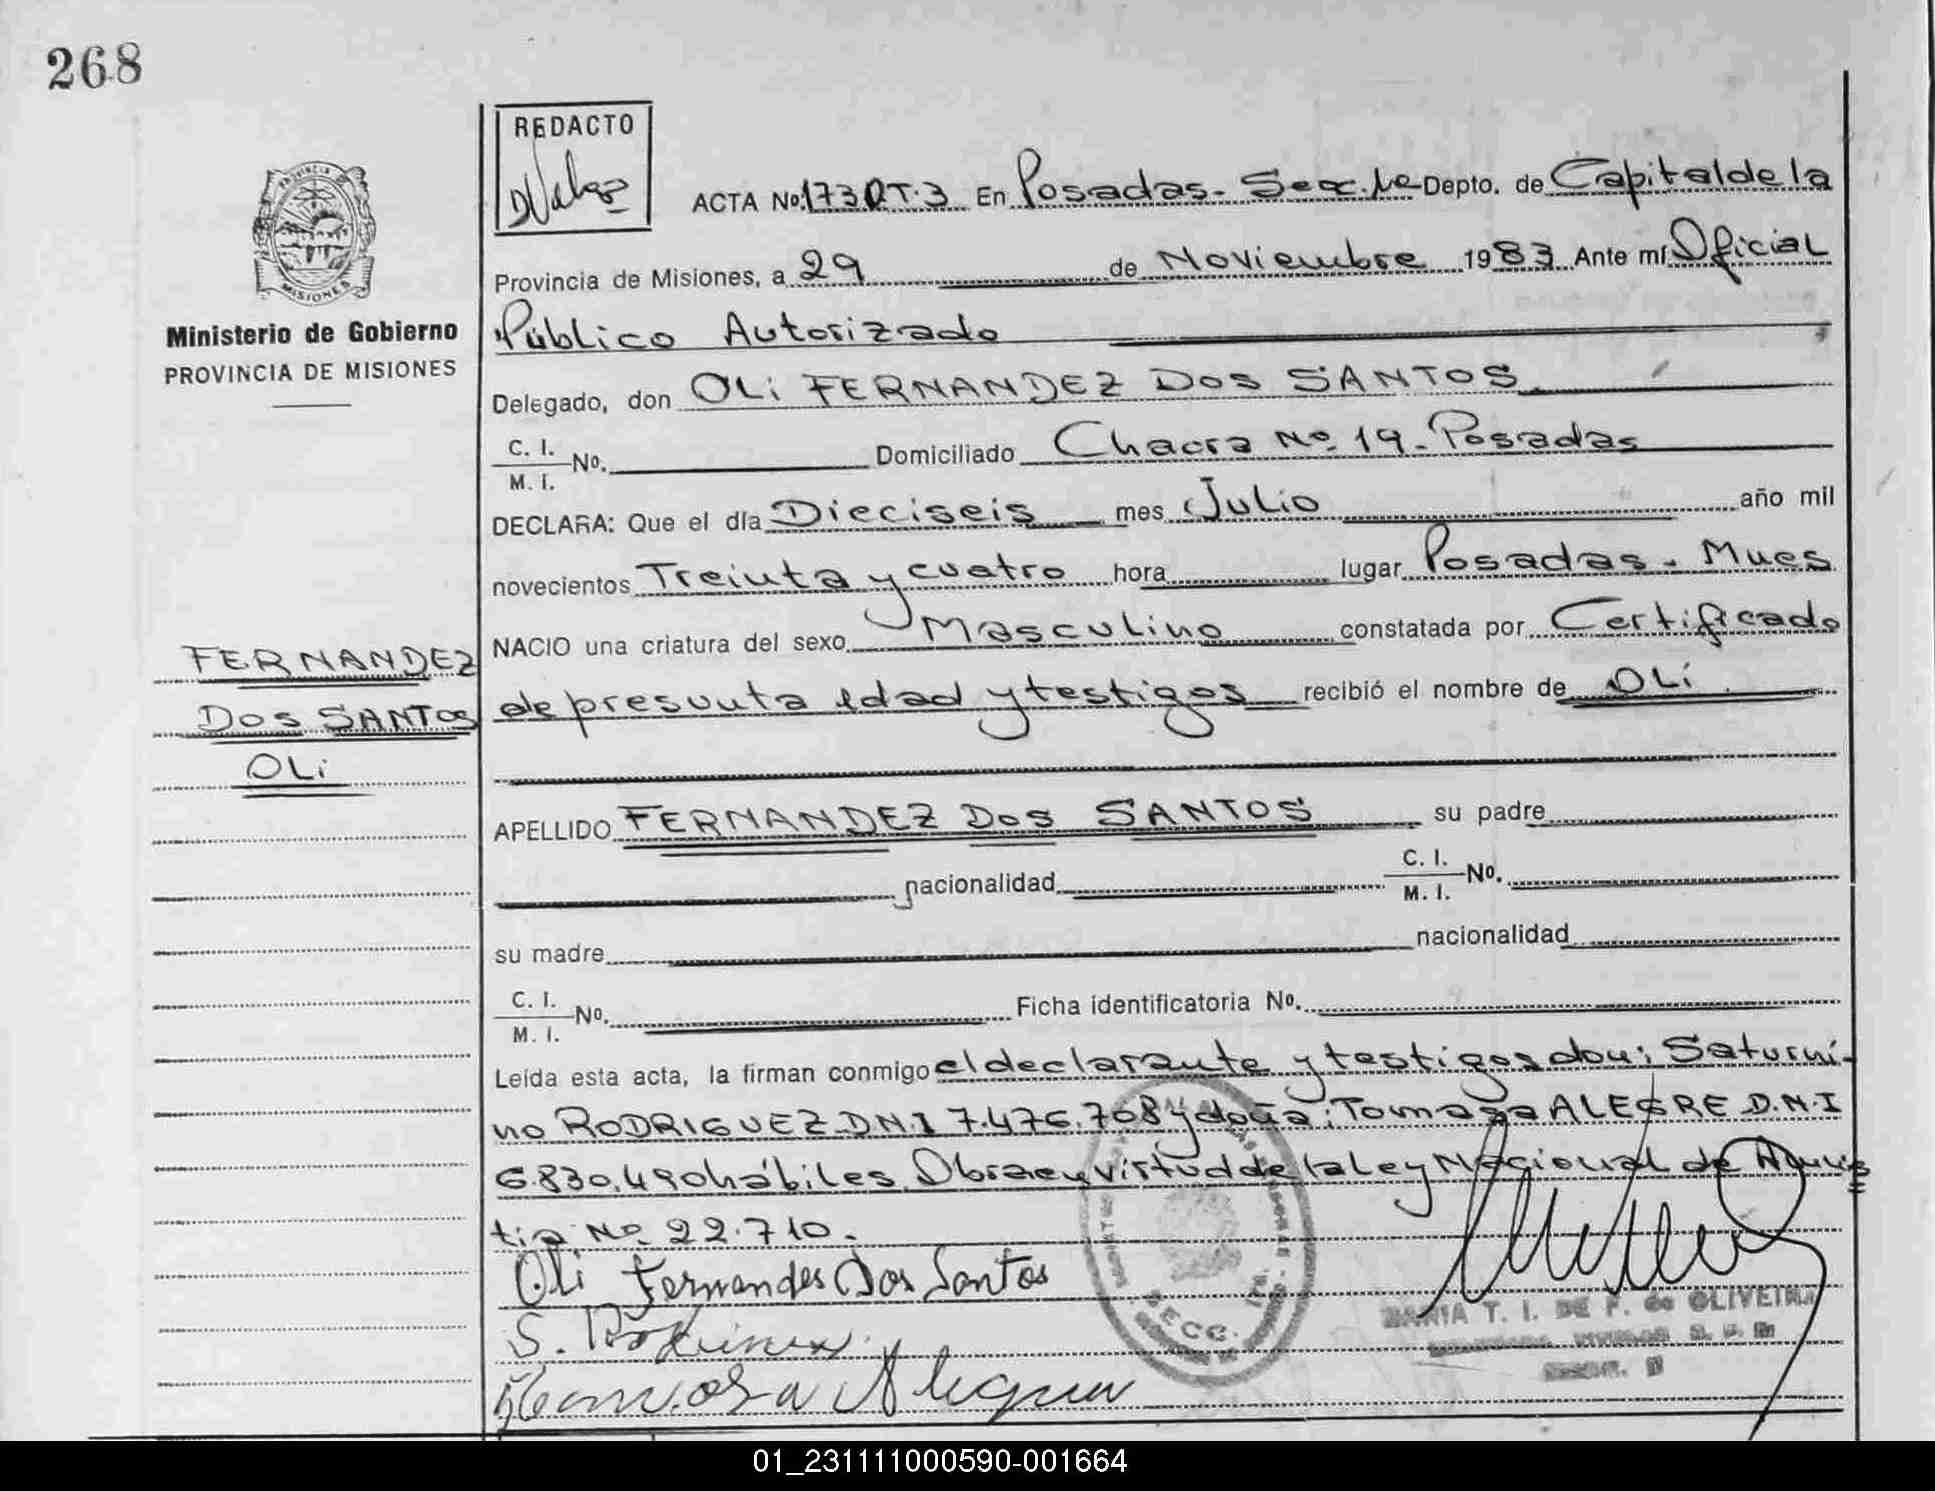 268
REDACTO
PROVINCIA DE
MISIONES
Ministerio de Gobierno
PROVINCIA DE MISIONES
ACTA No. 1730 T.3 En Posadas - Secc. 1a Depto. de Capital de la
Provincia de Misiones, a 29 de Noviembre 1983 Ante mí Oficial
Público Autorizado
Delegado, don OLi FERNANDEZ DOS SANTOS
C. I.
M. I. No. Domiciliado Chacra No. 19 - Posadas
DECLARA: Que el día Dieciseis mes Julio año mil
novecientos Treinta y cuatro hora lugar Posadas - Mnes
NACIO una criatura del sexo Masculino constatada por Certificado
de presunta edad y testigos recibió el nombre de OLi
FERNANDEZ
DOS SANTOS
OLi
APELLIDO FERNANDEZ DOS SANTOS su padre
nacionalidad C. I.
M. I. No.
su madre nacionalidad
C. I.
M. I. No. Ficha identificatoria No.
Leída esta acta, la firman conmigo el declarante y testigos don: Saturni-
no RODRIGUEZ D.N.I 7.476.708 y doña: Tomasa ALEGRE D.N.I
6.830.490 hábiles. Obra en virtud de la Ley Nacional de Amnis
tia No. 22.710.
Oli Fernandes Dos Santos
S. Rodriguez
Tomasa Alegre
SECC.
MARIA T. I. DE F. de OLIVEIRA
01_231111000590-001664